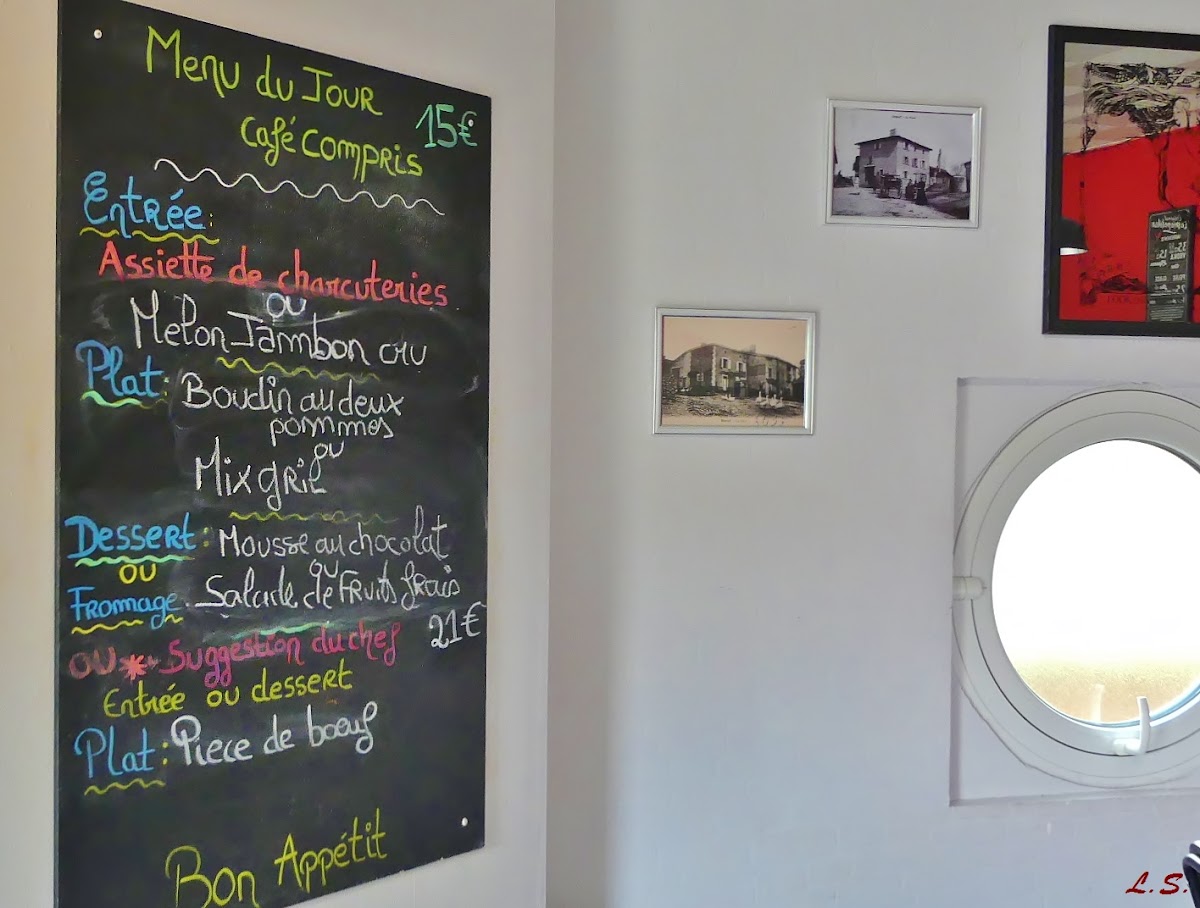 Menu du Jour
15€
Café compris
Entrée:
Assiette de charcuteries
ou
Melon Jambon cru
Plat: Boudin au deux
pommes
ou
Mix gril
Dessert: Mousse au chocolat
ou ou
Fromage. Salade de Fruits frais
21€
ou * Suggestion du chef
Entrée ou dessert
Plat: Piece de bœuf
Bon Appétit
L.S.